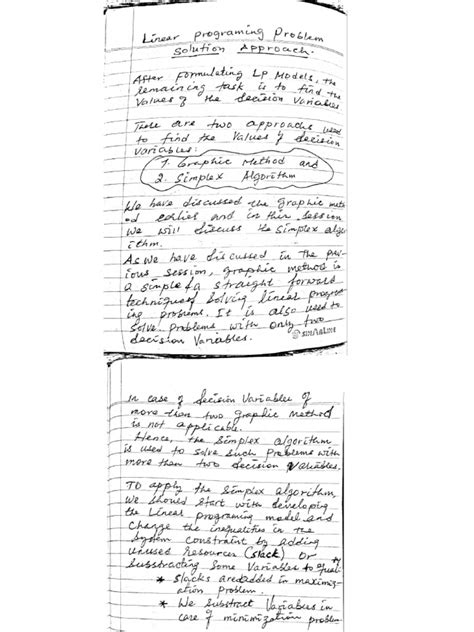 Linear programing Problem
Solution Approach.
After formulating LP Models, the
remaining task is to find the
Values of the decision Variables
There are two approachs used
to find the Values of decision
Variables:
1. Graphic Method and
2. Simplex Algorithm
We have discussed the Graphic meth
od earlier and in this session
we will discuss the Simplex algor
ithm.
As we have discussed in the prev
ious session, graphic method is
a simple & straight forward
techniques of Solving linear program
ing problems. It is also used to
solve problems with only two
decision Variables.
In case of decision Variables of
more than two graphic method
is not applicable.
Hence, the Simplex algorithm
is used to solve such problems with
more than two decision Variables.
To apply the Simplex algorithm,
we should start with developing
the Linear programing model and
change the inequalities in the
System constraint by adding
unused Resources (slack) or
Substracting Some Variables to
* Slacks are added in maximiz-
ation problem.
* We Substract Variables in
case of minimization problem